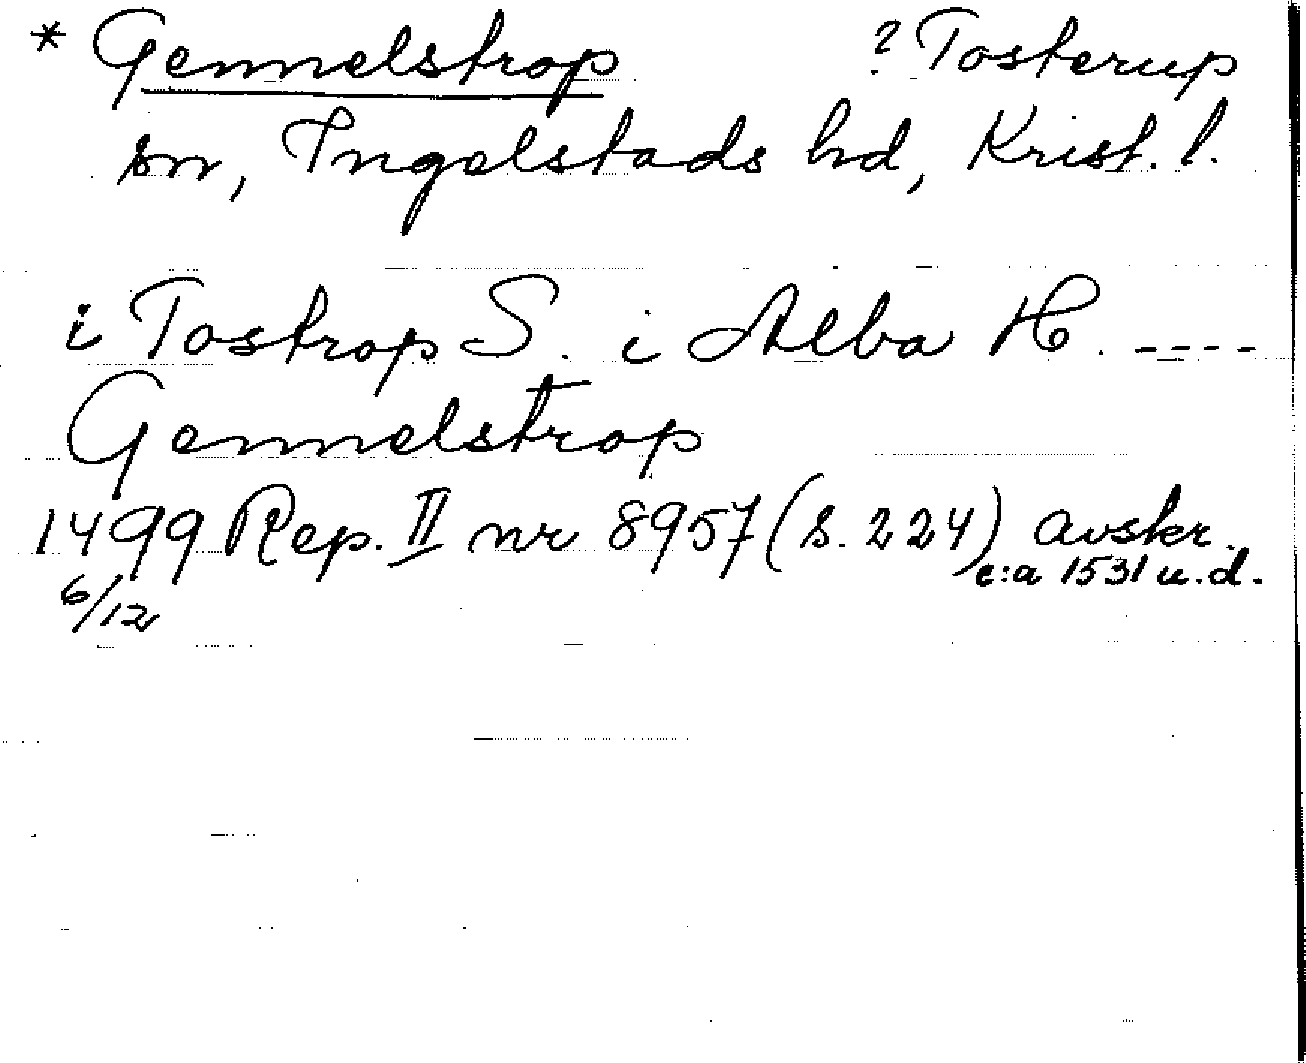 * Gemmelstrop ? Tosterup
sn, Ingelstads hd, Krist. l.
i Tostrop S. i Alba H. ----
Gemmelstrop
1499 Rep. II nr 8957 (s. 224) avskr.
6/12 c:a 1531 u.d.